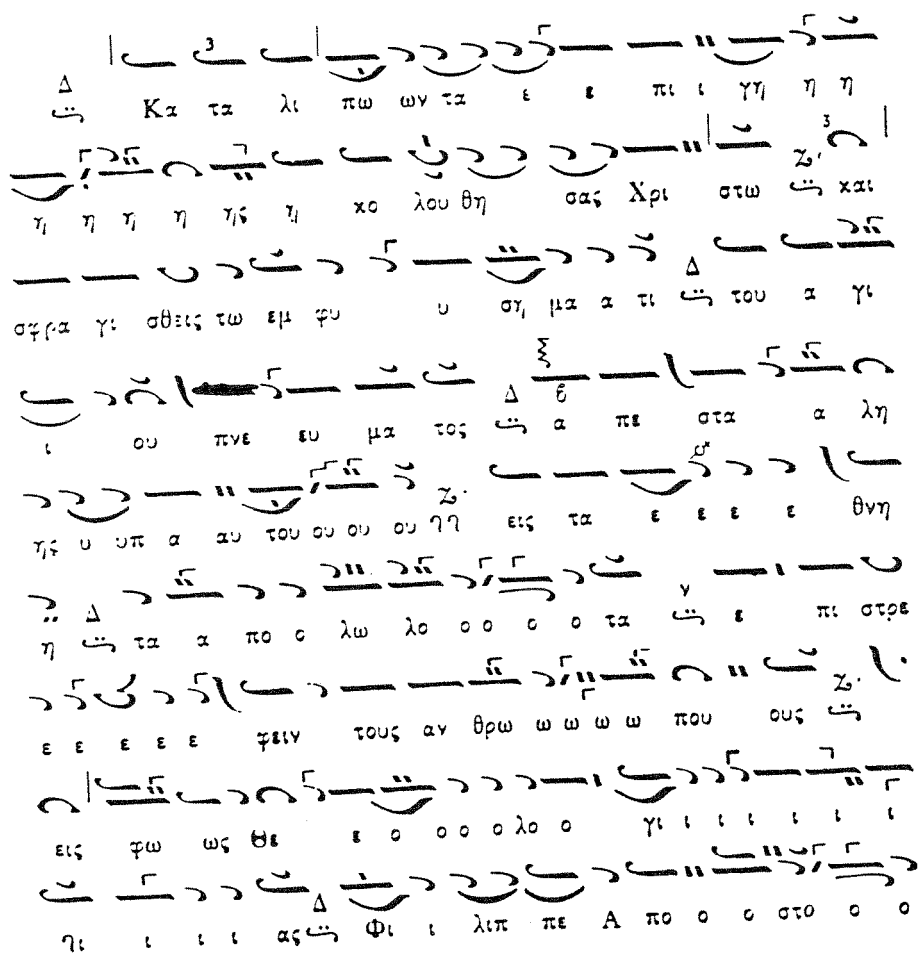 Δ Κα τα λι πω ων τα ε ε πι ι γη η η
η η η η ης η κο λου θη σας Χρι στω και
σφρα γι σθεις τω εμ φυ υ ση μα α τι Δ του α γι
ι ου πνε ευ μα τος Δ α πε στα α λη
ης υ υπ α αυ του ου ου ου εις τα ε ε ε ε θνη
η Δ τα α πο ο λω λο ο ο ο ο τα ε πι στρε
ε ε ε ε ε φειν τους αν θρω ω ω ω ω που ους
εις φω ως Θε ε ο ο ο ο λο ο γι ι ι ι ι ι ι
ηι ι ι ι ας Δ Φι ι λιπ πε Α πο ο ο στο ο ο